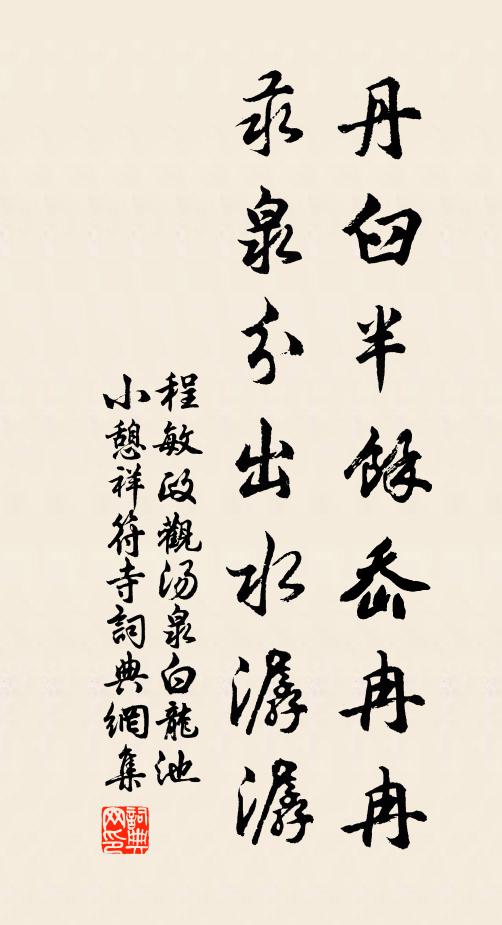 丹臼半餘香冉冉
汞泉分出水潺潺
程敏政觀湯泉白龍池
小憩祥符寺詞典網集
詞典
网印